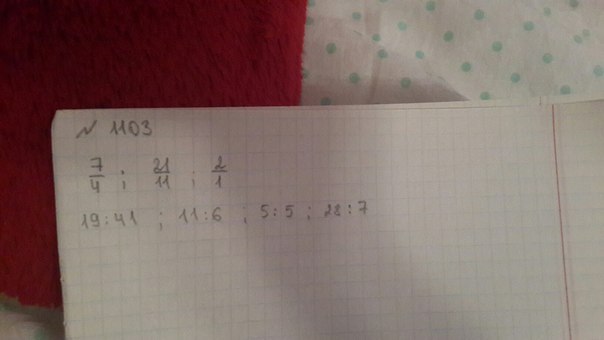 № 1103
7/4 ; 21/11 ; 2/1
19:41 ; 11:6 ; 5:5 ; 28:7